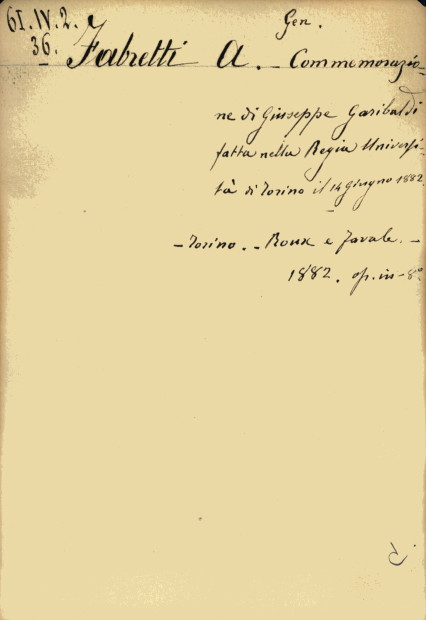 61.IV.2. Gen.
36. Fabretti A. - Commemorazio-
ne di Giuseppe Garibaldi
fatta nella Regia Universi-
tà di Torino il 14 Giugno 1882.
- Torino. - Roux e Favale. -
1882. op. in-8º